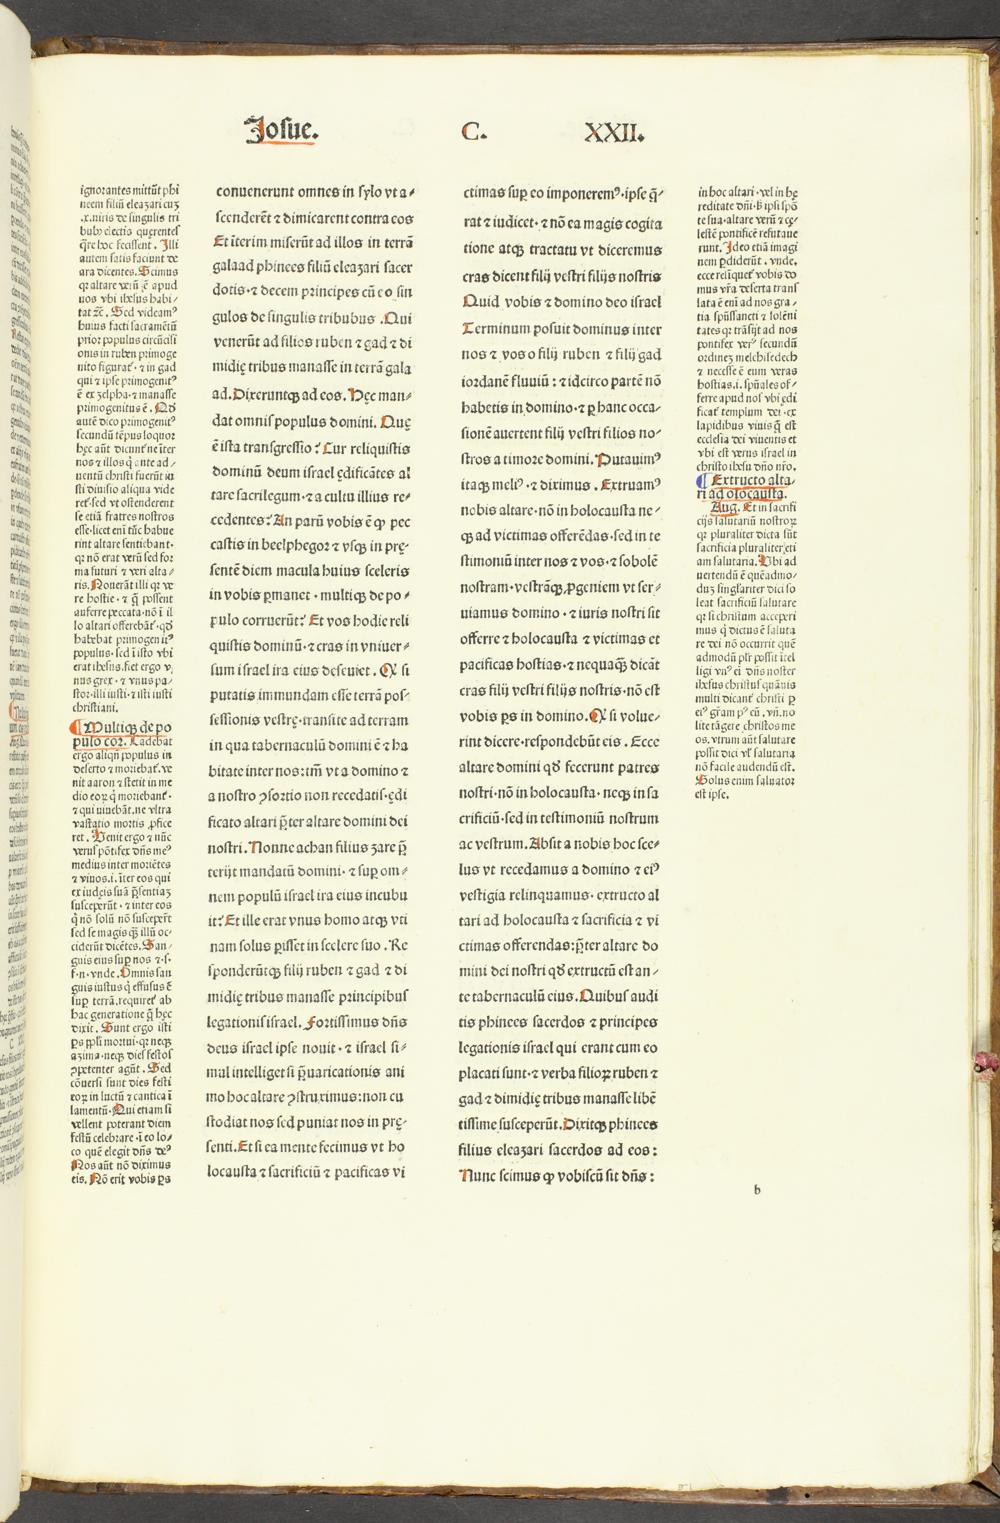 Josue. C. XXII.
ignorantes mittūt phi
neem filiū eleazari cuȝ
.x.uiris de singulis tri
bubꝰ electis querentes
q̄re hoc fecissent. Illi
autem satis faciunt de
ara dicentes. Scimus
qꝛ altare verū ē apud
uos vbi ihesus habi/
tat ꝛc̄. Sed videamꝰ
huius facti sacramētū
prior populus circūcisi
onis in ruben primoge
nito figuratʳ· ⁊ in gad
qui ⁊ ipse primogenitꝰ
ē ex zelpha· ⁊ manasse
primogenitus ē. Qđ
autē dico primogenitꝰ
secundū tēpus loquor
hęc aūt dicuntʳ ne īter
nos ⁊ illos q̄ ante ad/
uentū christi fuerūt iu
sti diuisio aliqua vide
retʳ·sed vt ostenderent
se etiā fratres nostros
esse·licet eni tūc habue
rint altare sentiebant·
qꝛ nō erat verū sed for
ma futuri ⁊ veri alta/
ris. Nouerāt illi qꝛ ve
re hostie · ⁊ q̄ possent
auferre peccata·nō ī il
lo altari offerebātʳ·qđ
habebat primogenitꝰ
populus· sed ī isto vbi
erat ihesus.fiet ergo v
nus grex · ⁊ vnus pa/
stor·illi iusti· ⁊ isti iusti
christiani.
¶Multiqꝫ de po
pulo cor. Cadebat
ergo aliqn̄ populus in
deserto ⁊ moriebatʳ.ve
nit aaron ⁊ stetit in me
dio eoꝝ q̄ moriebantʳ.
⁊ qui uiuebāt.ne vltra
vastatio mortis ꝓfice
ret. Venit ergo ⁊ nūc
verus pōtifex dn̄s meꝰ
medius inter moriētes
⁊ viuos.i.īter eos qui
ex iudeis suā p̄sentiaȝ
susceperūt · ⁊ inter eos
q̄ nō solū nō susceperūt
sed se magis qꝫ illū oc-
ciderūt dicētes. San/
guis eius suꝑ nos ⁊·s·
f·n·vnde. Omnis san
guis iustus q̄ effusus ē
suꝑ terrā.requiretʳ ab
hac generatione q̄ hęc
dixit. Sunt ergo isti
ꝑs pp̄li mortui·qꝛ neqꝫ
azima·neqꝫ dies festos
ꝯpetenter agūt. Sed
cōuersi sunt dies festi
eoꝝ in luctū ⁊ cantica ī
lamentū· Qui etiam si
vellent poterant diem
festū celebrare·ī eo lo/
co quē elegit dn̄s deꝰ
Nos aūt nō diximus
eis. Nō erit vobis ꝑs
conuenerunt omnes in sylo vt a/
scenderēt ⁊ dimicarent contra eos
Et īterim miserūt ad illos in terrā
galaad phinees filiū eleazari sacer
dotis· ⁊ decem principes cū eo sin
gulos de singulis tribubus . Qui
venerūt ad filios ruben ⁊ gad ⁊ di
midię tribus manasse in terrā gala
ad. Dixeruntqꝫ ad eos. Hęc man/
dat omnis populus domini. Quę
ē ista transgressio? Cur reliquistis
dominū deum israel ędificātes al
tare sacrilegum·⁊ a cultu illius re/
cedentes? An parū vobis ē qꝫ pec
castis in beelphegor ⁊ vsqꝫ in pre/
sentē diem macula huius sceleris
in vobis ꝑmanet · multiqꝫ de po/
pulo corruerūt? Et vos hodie reli
quistis dominū·⁊ cras in vniuer/
sum israel ira eius deseuiet. Qꝫ si
putatis immundam esse terrā pos/
sessionis vestrę·transite ad terram
in qua tabernaculū domini ē ⁊ ha
bitate inter nos:tm̄ vt a domino ⁊
a nostro ꝯsortio non recedatis·ędi
ficato altari p̄ter altare domini dei
nostri. Nonne achan filius zare p̄
terijt mandatū domini·⁊ suꝑ om/
nem populū israel ira eius incubu
it? Et ille erat vnus homo atqꝫ vti
nam solus ꝑisset in scelere suo . Re
sponderūtqꝫ filij ruben ⁊ gad ⁊ di
midię tribus manasse principibus
legationis israel. Fortissimus dn̄s
deus israel ipse nouit · ⁊ israel si/
mul intelliget si p̄uaricationis ani
mo hoc altare ꝯstruximus:non cu
stodiat nos sed puniat nos in pre/
senti. Et si ea mente fecimus vt ho
locausta ⁊ sacrificiū ⁊ pacificas vi
ctimas suꝑ eo imponeremꝰ·ipse q̄/
rat ⁊ iudicet· ⁊ nō ea magis cogita
tione atqꝫ tractatu vt diceremus
cras dicent filij vestri filijs nostris
Quid vobis ⁊ domino deo israel
Terminum posuit dominus inter
nos ⁊ vos o filij ruben ⁊ filij gad
iordanē fluuiū : ⁊ idcirco partē nō
habetis in domino·⁊ ꝑ hanc occa/
sionē auertent filij vestri filios no/
stros a timore domini. Putauimꝰ
itaqꝫ meliꝰ·⁊ diximus . Extruamꝰ
nobis altare·nō in holocausta ne/
qꝫ ad victimas offerēdas·sed in te
stimoniū inter nos ⁊ vos·⁊ sobolē
nostram·vestrāqꝫ ꝓgeniem vt ser/
uiamus domino · ⁊ iuris nostri sit
offerre ⁊ holocausta ⁊ victimas et
pacificas hostias·⁊ nequaqꝫ dicāt
cras filij vestri filijs nostris·nō est
vobis ꝑs in domino. Qꝫ si volue/
rint dicere·respondebūt eis . Ecce
altare domini qđ fecerunt patres
nostri·nō in holocausta· neqꝫ in sa
crificiū·sed in testimoniū nostrum
ac vestrum. Absit a nobis hoc sce/
lus vt recedamus a domino ⁊ eiꝰ
vestigia relinquamus· extructo al
tari ad holocausta ⁊ sacrificia ⁊ vi
ctimas offerendas:p̄ter altare do
mini dei nostri qđ extructū est an/
te tabernaculū eius. Quibus audi
tis phinees sacerdos ⁊ principes
legationis israel qui erant cum eo
placati sunt·⁊ verba filioꝝ ruben ⁊
gad ⁊ dimidię tribus manasse libē
tissime susceperūt. Dixitqꝫ phinees
filius eleazari sacerdos ad eos :
Nunc scimus qꝫ vobiscū sit dn̄s :
in hoc altari · vel in hę
reditate dn̄i·ẜ ipsi spō
te sua·altare verū ⁊ cę/
lestē pontificē refutaue
runt. Ideo etiā imagi
nem ꝑdiderūt . vnde.
ecce relīquetʳ vobis do
mus vr̄a deserta trans
lata ē eni ad nos gra/
tia spūssancti ⁊ solēni
tates qꝛ trāsijt ad nos
pontifex verꝰ secundū
ordineȝ melchisedech
⁊ necesse ē eum veras
hostias.i.spūales of/
ferre apud nos vbi edi
ficatʳ templum dei · ex
lapidibus viuis q̄ est
ecclesia dei viuentis et
vbi est verus israel in
christo ihesu dn̄o nr̄o.
¶Extructo alta/
ri ad olocausta.
Aug. Et in sacrifi
cijs salutariū nostroꝝ
qꝛ pluraliter dicta sūt
sacrificia pluraliter:eti
am salutaria. Vbi ad
uertendū ē quēadmo/
duȝ singl'ariter dici so
leat sacrificiū salutare
qꝛ si christum acceperi
mus q̄ dictus ē saluta
re dei nō occurrit quē
admodū plr̄ possit itel
ligi vnꝰ ei dn̄s noster
ihesus christus quāuis
multi dicantʳ christi ꝑ
eiꝰ gr̄am pꝰ eū . vn̄.no
lite tāgere christos me
os. vtrum aūt salutare
possit dici vl' salutaria
nō facile audendū est.
Solus enim saluator
est ipse.
b